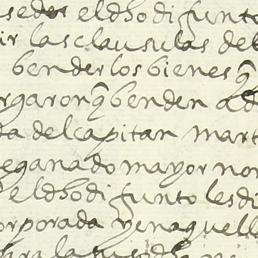 sedes el dho difunto
ir las clausulas del
bender los bienes q
rgaron q benden ad
da del capitan mart
e ganado mayor nom
el dho difunto les di
orporada y en aquell